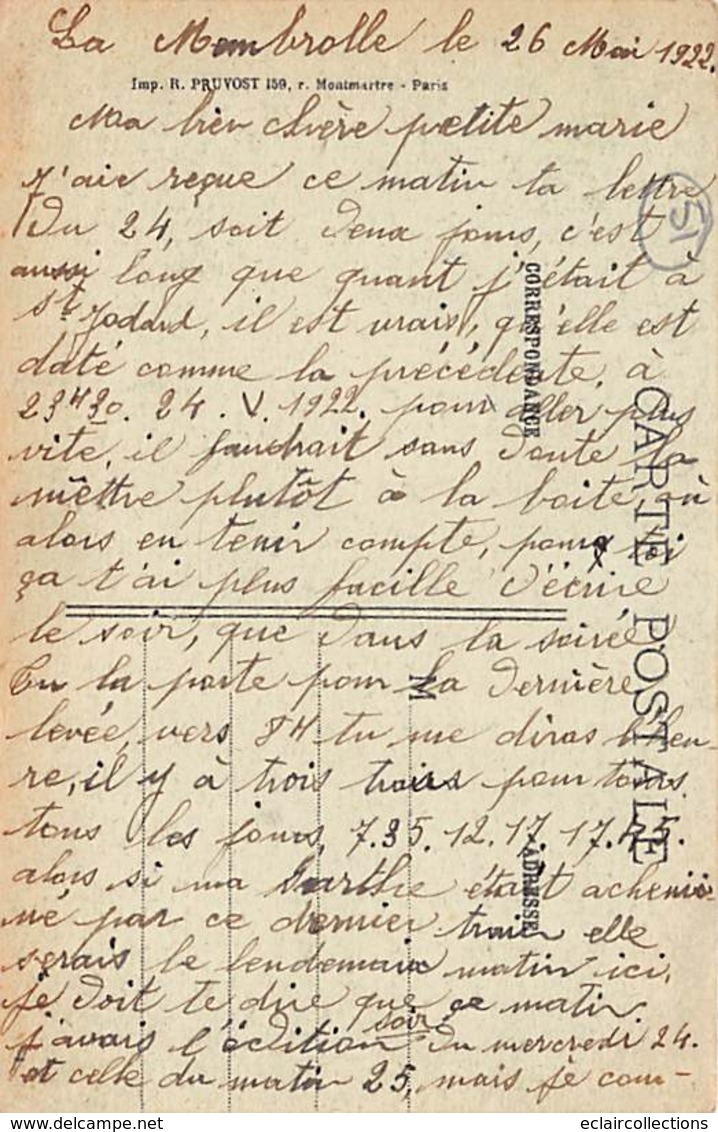 La Membrolle le 26 Mai 1922.
Imp. R. PRUVOST 159, r. Montmartre - Paris
Ma bien chère petite marie
j'aie reçue ce matin ta lettre
du 24, soit deux jours, c'est
51
aussi long que quant j'était à
St Jodard, il est vrais, qu'elle est
daté comme la précédente, à
23H30. 24. V. 1922. pour aller plus
vite, il faudrait sans doute la
mettre plutôt à la boite, où
alors en tenir compte, pour si
ça t'ai plus facille d'écrire
le soir, que dans la soirée
tu la porte pour la dernière
levée, vers 8H tu me diras l'heu-
re, il y à trois trains pour tours
tous les jours, 7.35. 12.17. 17.45.
alors, si ma était achemi-
né par ce dernier train elle
serais le lendemain matin ici,
je doit te dire que ce matin
j'avais l'édition soir du mercredi 24.
et celle du matin 25, mais je com-
CORRESPONDANCE
CARTE POSTALE
M
ADRESSE
www.delcampe.net
eclaircollections